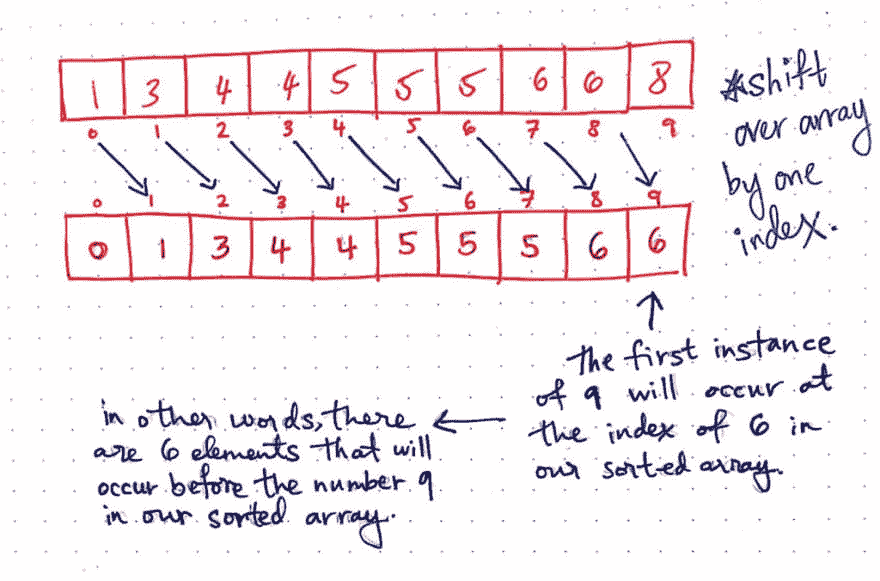 1 3 4 4 5 5 5 6 6 8
0 1 2 3 4 5 6 7 8 9
*shift
over array
by one
index.
0 1 2 3 4 5 6 7 8 9
0 1 3 4 4 5 5 5 6 6
the first instance
of 9 will occur at
the index of 6 in
our sorted array.
in other words, there
are 6 elements that will
occur before the number 9
in our sorted array.